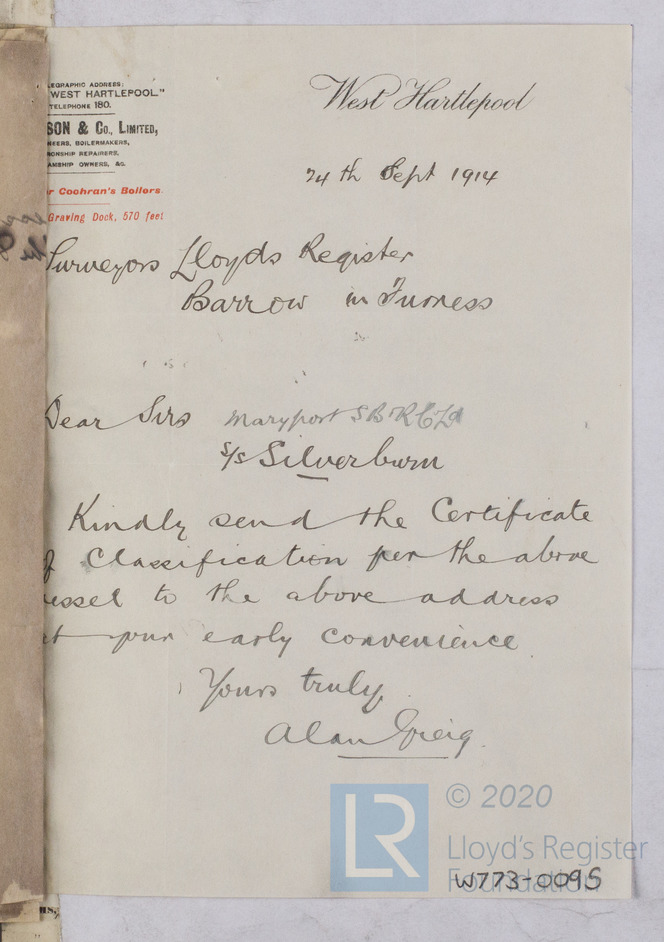 LEGRAPHIC ADDRESS:
WEST HARTLEPOOL."
TELEPHONE 180.
SON & Co., LIMITED,
NEERS, BOILERMAKERS,
RONSHIP REPAIRERS,
AMSHIP OWNERS, &c.
or Cochran's Boilers.
Graving Dock, 570 feet
West Hartlepool
24th Sept 1914
Surveyors Lloyds Register
Barrow in Furness
Dear Sirs
Maryport S B R C Ld
S/S Silverburn
Kindly send the Certificate
of Classification per the above
vessel to the above address
at your early convenience.
Yours truly
Alan Greig.
LR
© 2020
Lloyd's Register
Foundation
W773-0095